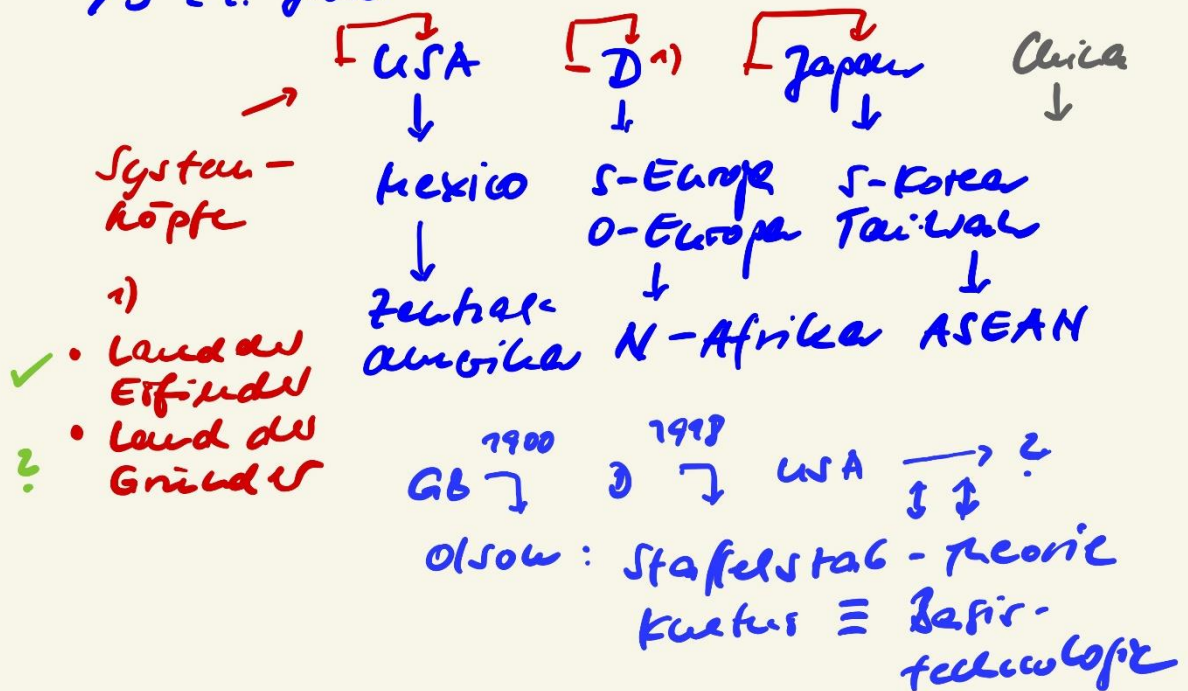 USA D 1) Japan China
System-
köpfe
Mexico S-Europa S-Korea
O-Europa Taiwan
Zentral-
amerika N-Afrika ASEAN
1)
• Land der
Erfinder
• Land der
Gründer
?
1900 1918
GB D USA → ?
Olson: Staffelstab-Theorie
≡ Basis-
technologie